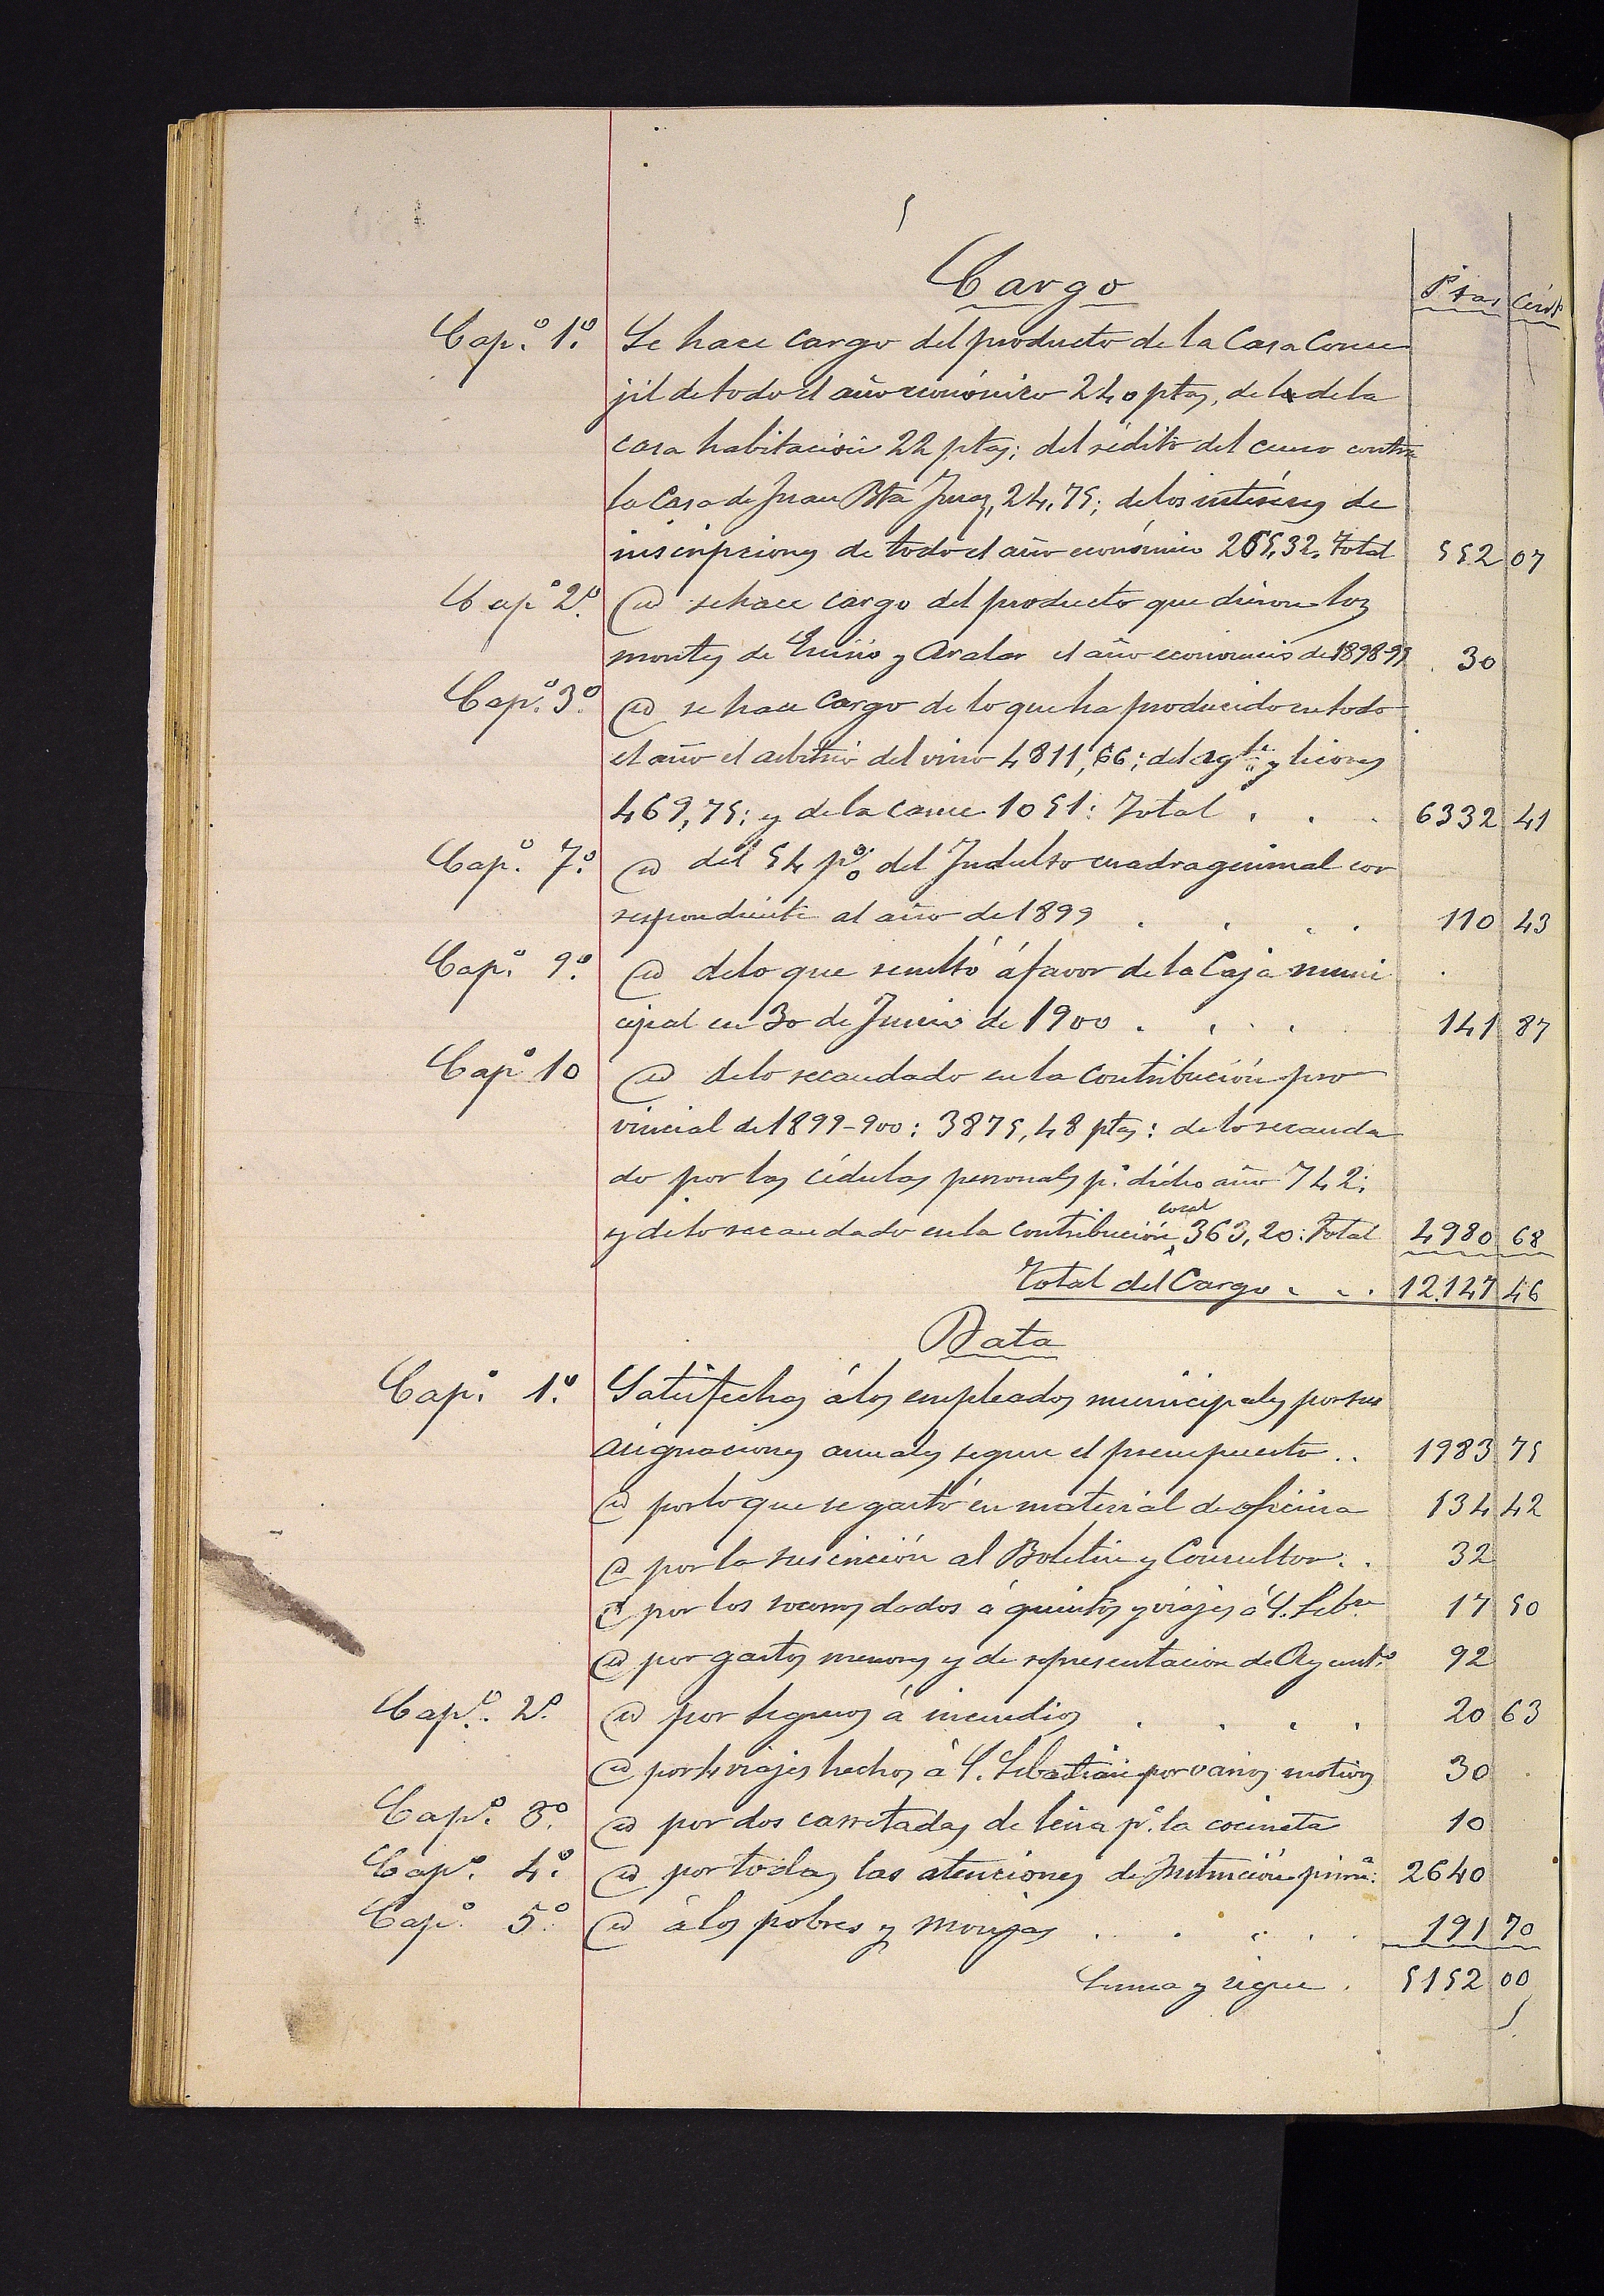 Cargo
Ptas Cénts
Cap.º 1.º Se hace cargo del producto de la Casa Conce
jil de todo el año económico 240 ptas, de la de la
casa habitación 22 ptas; del rédito del censo contra
la Casa de Juan Bta 24,75; de los intéreses de
inscripciones de todo el año económico 265,32. Total 552 07
Cap.º 2.º Id se hace cargo del producto que dieron los
montes de Enirio y Aralar el año economico de 1898-99 30
Cap.º 3.º Id se hace cargo de lo que ha producido en todo
el año el arbitrio del vino 4811,66; del agte y licores
469,75; y de la carne 1051: Total . . . 6332 41
Cap.º 7.º Id del 54 p% del Indulto cuadragesimal cor
respondiente al año de 1899 . . . . 110 43
Cap.º 9.º Id de lo que resultó á favor de la Caja muni
cipal en 30 de Junio de 1900 . . . . 141 87
Capº 10 Id de lo recaudado en la contribución pro
vincial de 1899-900: 3875,48 ptas: de lo recauda
do por las cédulas personales p.ª dicho año 742;
y de lo recaudado en la contribución local 363,20: Total 4980 68
Total del Cargo . . . 12.147 46
Data
Cap.º 1.º Satisfechas á los empleados municipales por sus
asignaciones anuales segun el presupuesto . . 1983 75
Id por lo que se gastó en material de oficina 134 42
Id por la suscrición al Boletin y Consultor . . 32
Id por los socorros dados á quintos y viajes á S. Sebn 17 50
Id por gastos menores y de representacion de Ayuntº 92
Cap.º 2.º Id por seguros á incendios . . . . 20 63
Id por 4 viajes hechos á S. Sebastián por varios motivos 30
Cap.º 3.º Id por dos carretadas de leña p.ª la cocineta 10
Cap.º 4.º Id por todas las atenciones de Instrución primª: 2640
Cap.º 5.º Id á los pobres y monjas . . . . 191 70
Suma y sigue . 5152 00